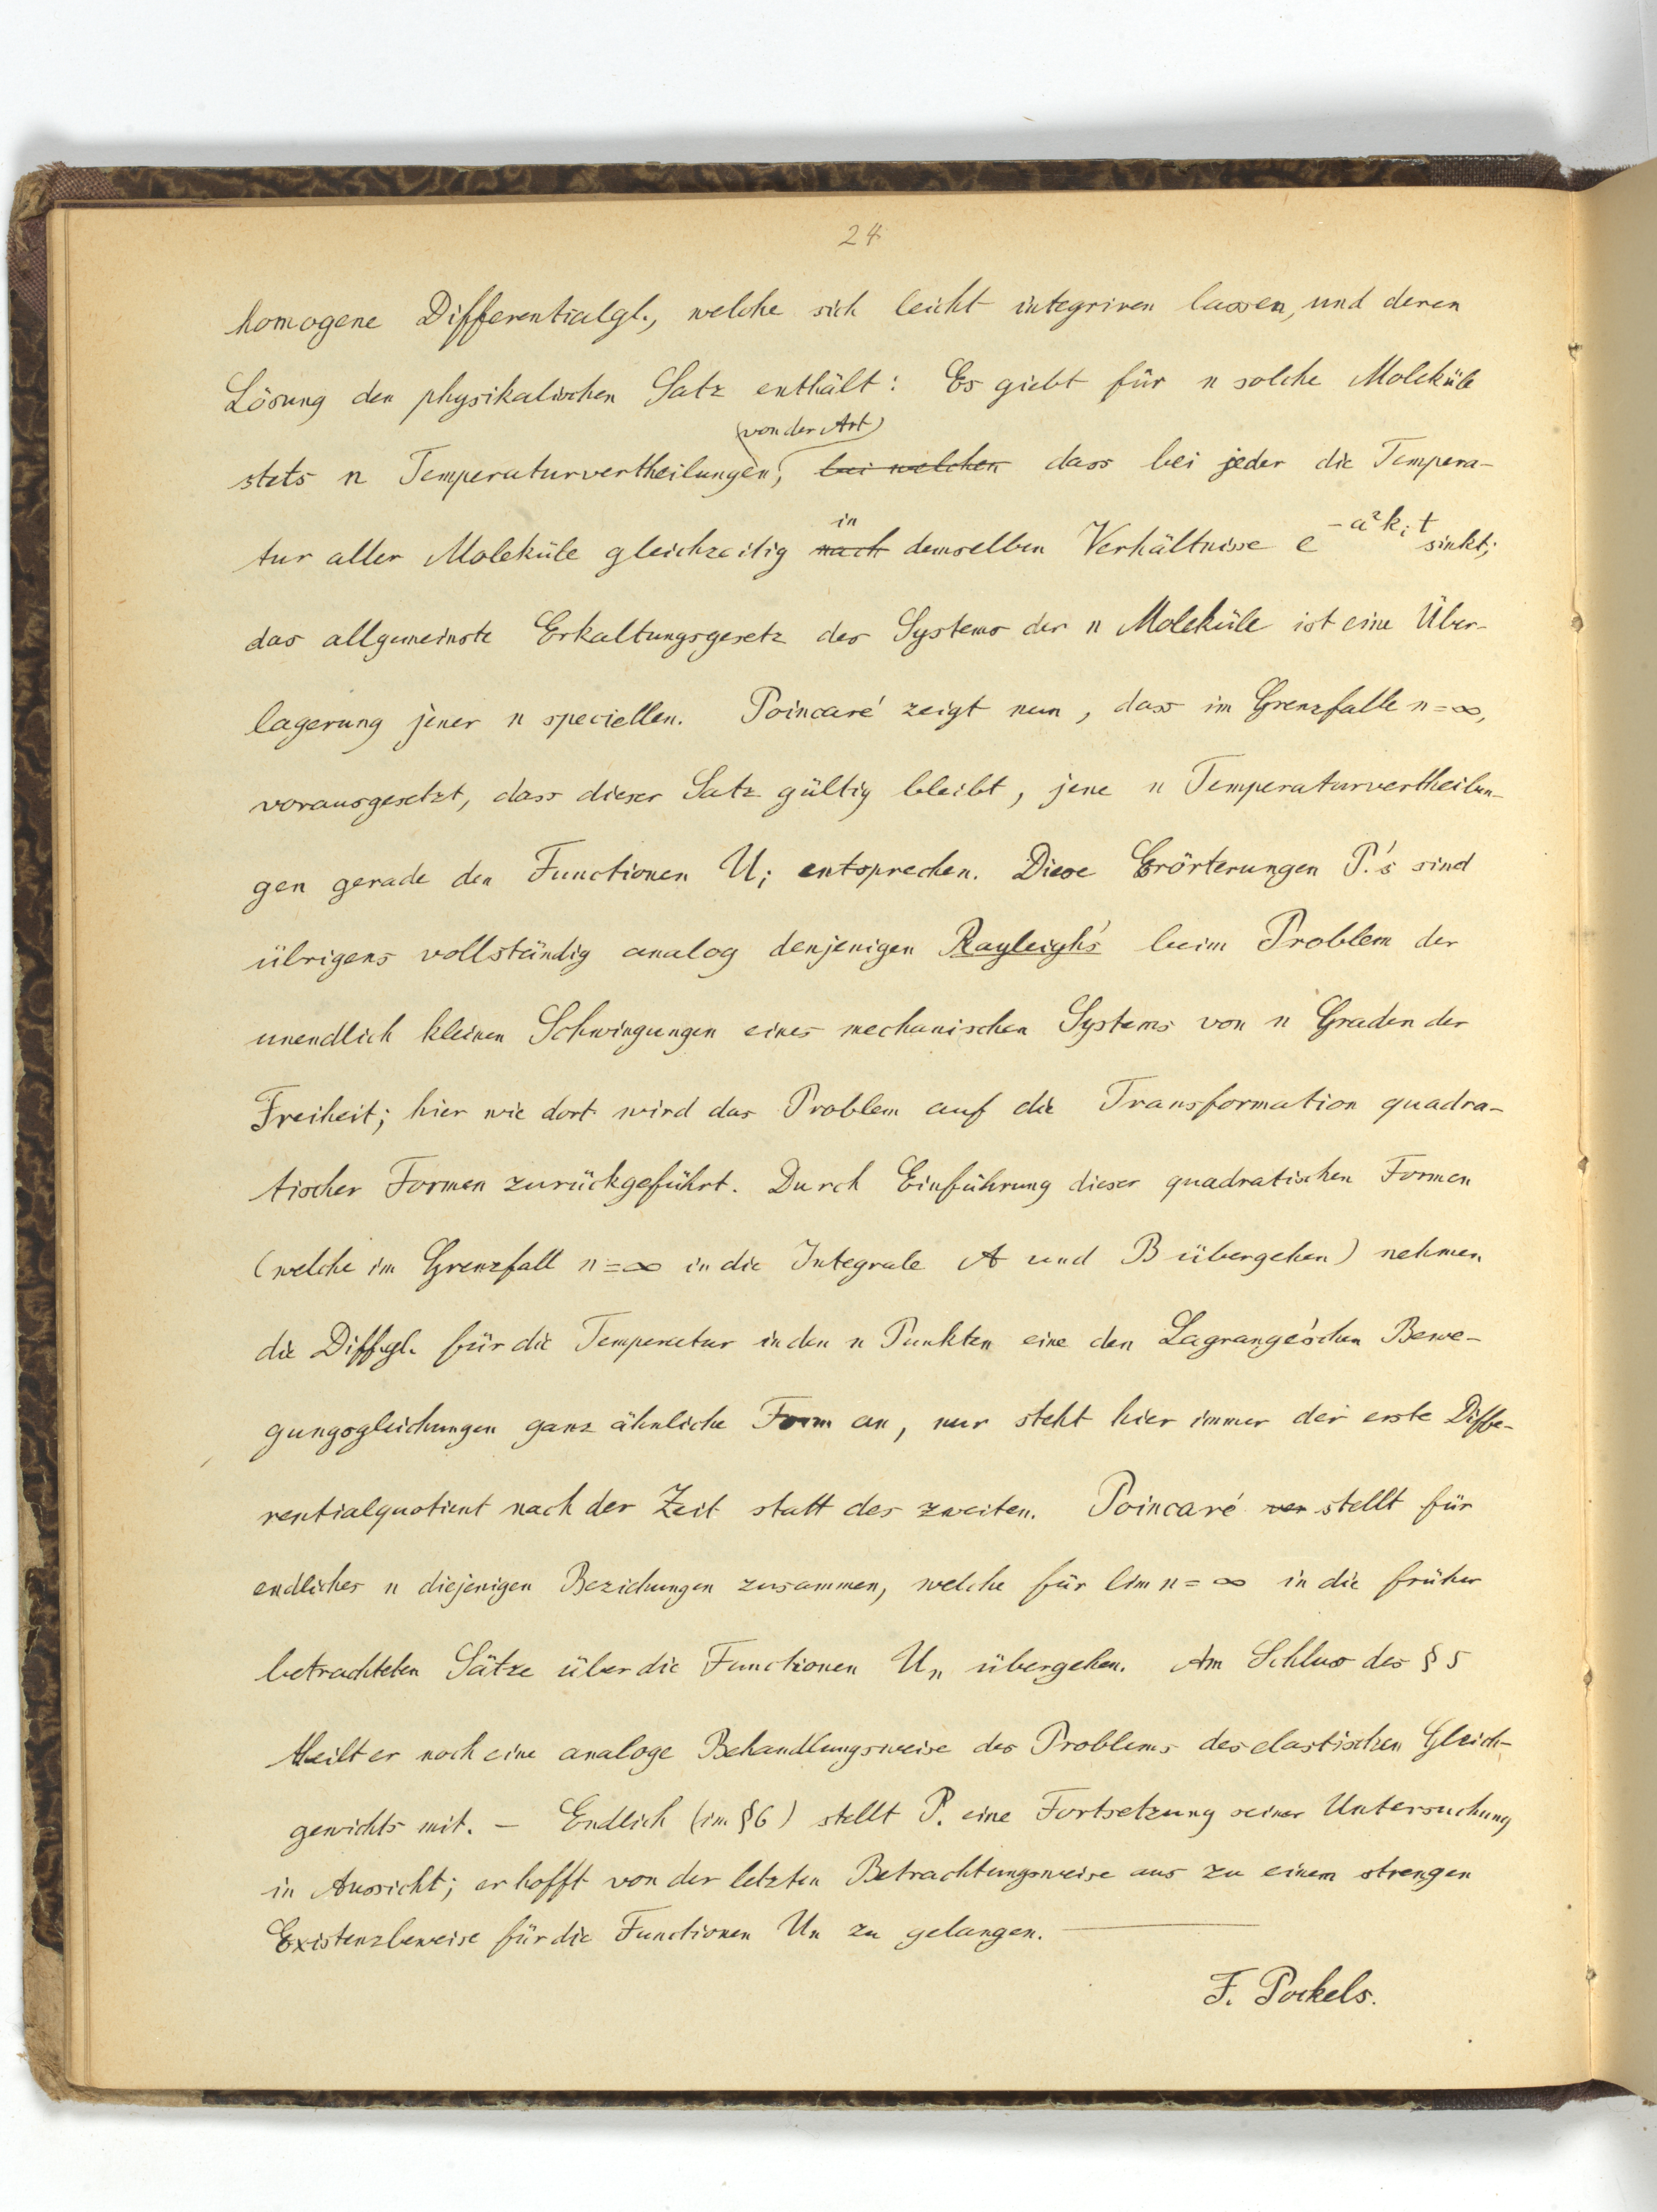 24
homogene Differentialgl., welche sich leicht integriren lassen, und deren
Lösung den physikalischen Satz enthält: Es giebt für n solche Moleküle
(von der Art)
stets n Temperaturvertheilungen, bei welchen dass bei jeder die Tempera-
in
tur aller Moleküle gleichzeitig nach demselben Verhältnisse e^{-a²k_i t} sinkt;
das allgemeinste Erkaltungsgesetz des Systems der n Moleküle ist eine Über-
lagerung jener n speciellen. Poincaré zeigt nun, dass im Grenzfalle n=∞,
vorausgesetzt, dass dieser Satz gültig bleibt, jene n Temperaturvertheilun-
gen gerade den Functionen U_i entsprechen. Diese Erörterungen P.'s sind
übrigens vollständig analog denjenigen Rayleigh's beim Problem der
unendlich kleinen Schwingungen eines mechanischen Systems von n Graden der
Freiheit; hier wie dort wird das Problem auf die Transformation quadra-
tischer Formen zurückgeführt. Durch Einführung dieser quadratischen Formen
(welche im Grenzfall n=∞ in die Integrale A und B übergehen) nehmen
die Diffgl. für die Temperatur in den n Punkten eine den Lagrange'schen Bewe-
gungsgleichungen ganz ähnliche Form an, nur steht hier immer der erste Diffe-
rentialquotient nach der Zeit statt des zweiten. Poincaré ver stellt für
endliches n diejenigen Beziehungen zusammen, welche für lim n=∞ in die früher
betrachteten Sätze über die Functionen U_n übergehen. Am Schluss des § 5
theilt er noch eine analoge Behandlungsweise des Problems des elastischen Gleich-
gewichts mit. — Endlich (im §6) stellt P. eine Fortsetzung seiner Untersuchung
in Aussicht; er hofft von der letzten Betrachtungsweise aus zu einem strengen
Existenzbeweise für die Functionen U_n zu gelangen. —
F. Pockels.